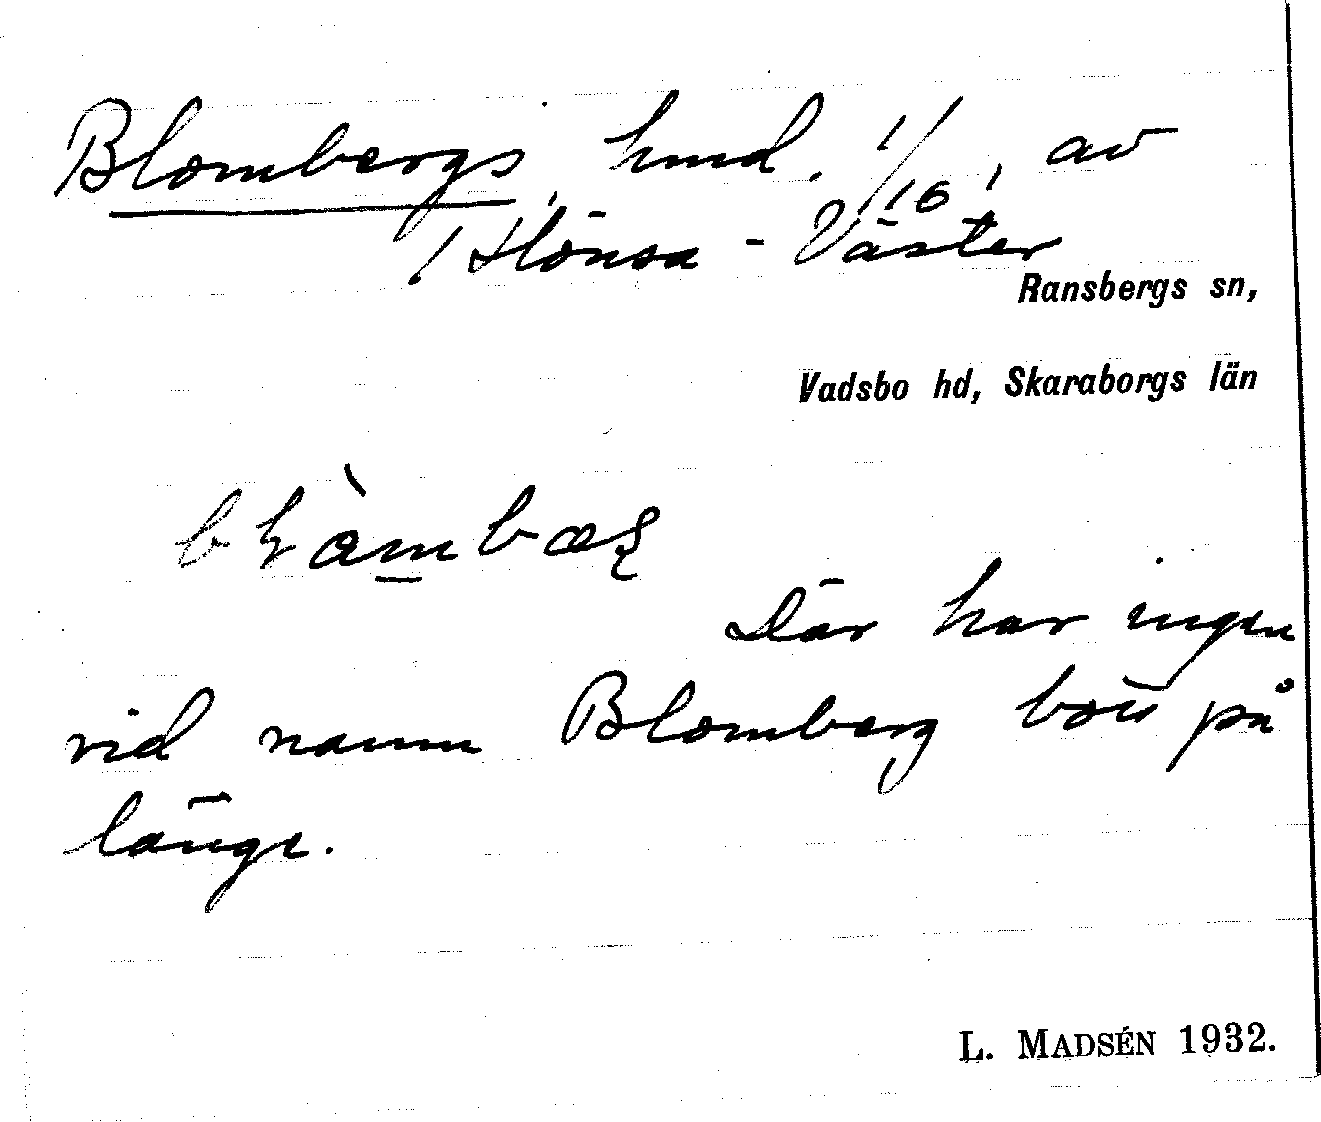 Blombergs, hmd. 1/16, av
1 Hönsa-Väster
Ransbergs sn,
Vadsbo hd, Skaraborgs län
Där har ingen
vid namn Blomberg bott på
länge.
L. MADSÉN 1932.